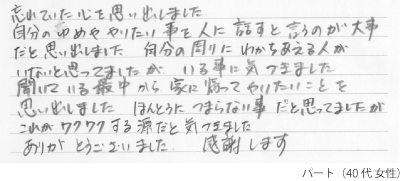 忘れていた心を思い出しました
自分のゆめややりたい事を人に話すと言うのが大事
だと思い出しました 自分の周りにわかちあえる人が
いないと思ってましたが いる事に気づきました
聞いている最中から家に帰ってやりたいことを
思い出しました ほんとうにつまらない事だと思ってましたが
これがワクワクする源だと気づきました
ありがとうございました 感謝します
パート（40代女性）